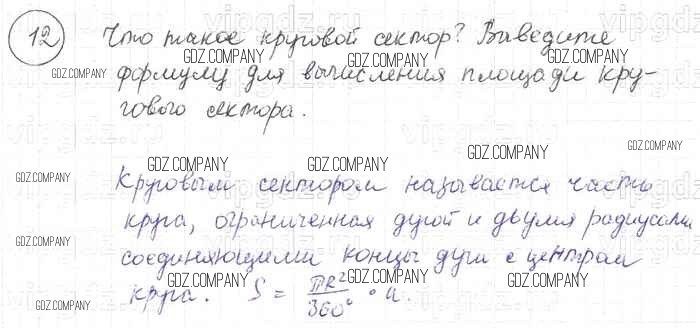 12 Что такое круговой сектор? Выведите
формулу для вычисления площади кру-
гового сектора.
Круговым сектором называется часть
круга, ограниченная дугой и двумя радиусами
соединяющими концы дуги с центром
круга. S = πR²/360° · α.
GDZ.COMPANY
GDZ.COMPANY
GDZ.COMPANY
GDZ.COMPANY
GDZ.COMPANY
GDZ.COMPANY
GDZ.COMPANY
GDZ.COMPANY
GDZ.COMPANY
GDZ.COMPANY
GDZ.COMPANY
GDZ.COMPANY
GDZ.COMPANY
GDZ.COMPANY